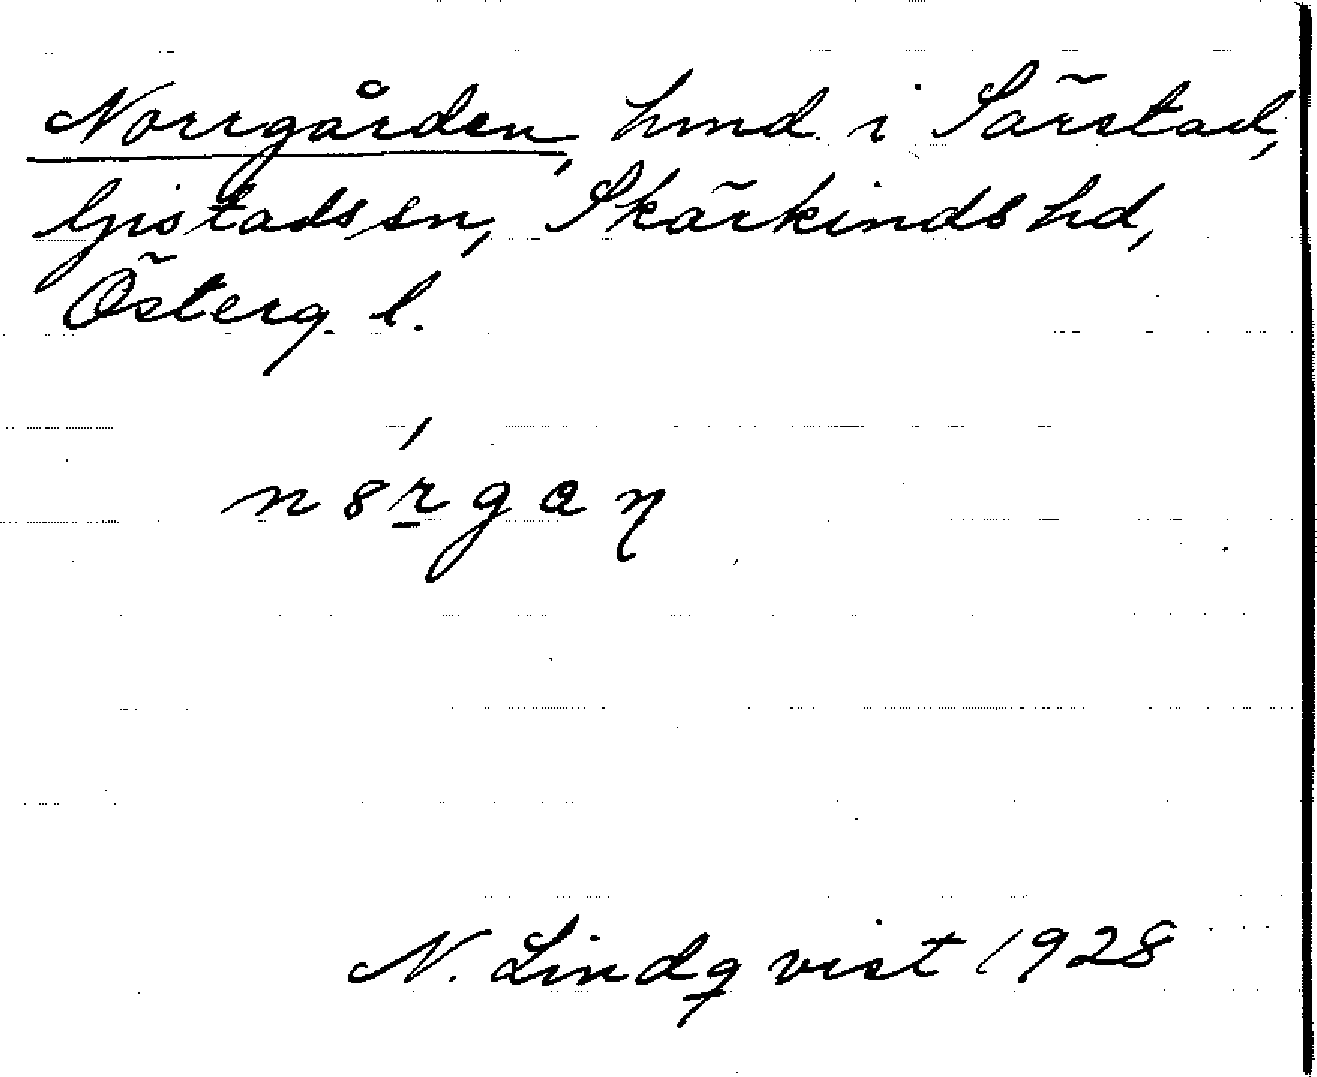 Norrgården, hmd. i Särstad,
Gistads sn, Skärkinds hd,
Österg. l.
n8́rgaŋ
N. Lindqvist 1928